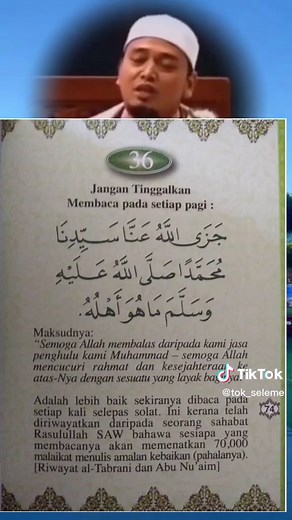 36
Jangan Tinggalkan
Membaca pada setiap pagi :
جَزَى اللَّهُ عَنَّا سَيِّدَنَا
مُحَمَّدًا صَلَّى اللَّهُ عَلَيْهِ
وَسَلَّمَ مَا هُوَ أَهْلُهُ.
Maksudnya:
"Semoga Allah membalas daripada kami jasa
penghulu kami Muhammad – semoga Allah
mencucuri rahmat dan kesejahteraan ke
atas-Nya dengan sesuatu yang layak
TikTok
@tok_seleme
Adalah lebih baik sekiranya dibaca pada
setiap kali selepas solat. Ini kerana telah
diriwayatkan daripada seorang sahabat
Rasulullah SAW bahawa sesiapa yang
membacanya akan memenatkan 70,000
malaikat menulis amalan kebaikan (pahalanya).
[Riwayat al-Tabrani dan Abu Nu'aim]
74